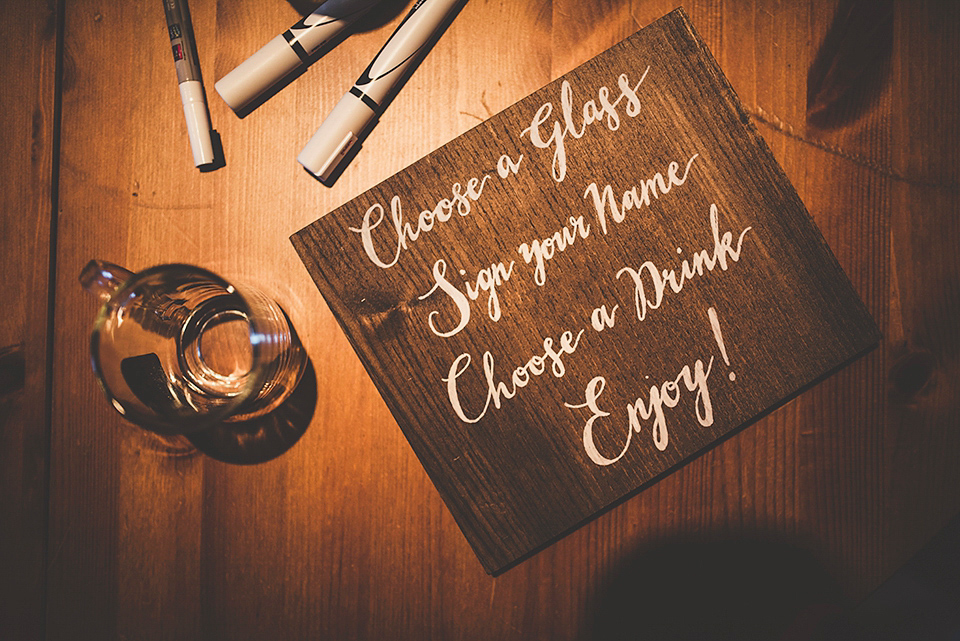 Choose a Glass
Sign your Name
Choose a Drink
Enjoy!